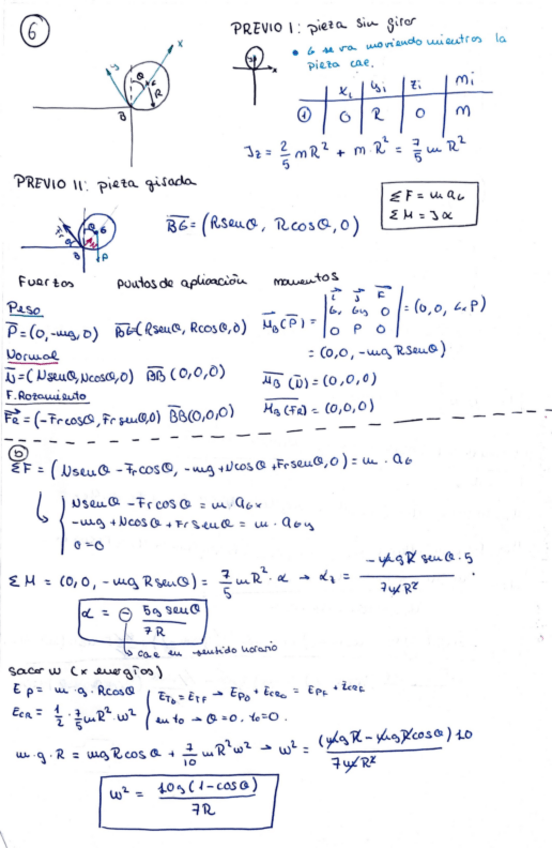 6
PREVIO I: pieza sin girar
• G se va moviendo mientras la
pieza cae.
xi yi zi mi
① 0 R 0 m
Jz = 2/5 mR² + m·R² = 7/5 mR²
x
y
θ
G
R
B
PREVIO II: pieza girada
BG = (Rsenθ, Rcosθ, 0)
ΣF = m aG
ΣM = Jα
θ
G
B
P
Fuerzas puntos de aplicación momentos
Peso
P = (0, -mg, 0) BG (Rsenθ, Rcosθ, 0) MB(P) = | i j k | Gx Gy 0 | 0 P 0 | = (0, 0, Gx P)
= (0, 0, -mg Rsenθ)
Normal
N = (Nsenθ, Ncosθ, 0) BB (0,0,0) MB (N) = (0,0,0)
F. Rozamiento
FR = (-Frcosθ, Frsenθ, 0) BB(0,0,0) MB(FR) = (0,0,0)
b
ΣF = (Nsenθ - Frcosθ, -mg + Ncosθ + Frsenθ, 0) = m · aG
Nsenθ - Frcosθ = m aGx
-mg + Ncosθ + Frsenθ = m · aGy
0=0
ΣM = (0, 0, -mg Rsenθ) = 7/5 mR² · α → αz = -mgR senθ · 5 / 7mR²
α = - 5g senθ / 7R
cae en sentido horario
sacar w (x energías)
Ep = m · g · Rcosθ
ECR = 1/2 · 7/5 mR² · w²
ET0 = ETF → Ep0 + ECR0 = EPF + ECRF
en t0 → θ = 0, t0 = 0.
m · g · R = mgRcosθ + 7/10 mR²w² → w² = (mgR - mgRcosθ) 10 / 7mR²
w² = 10g (1-cosθ) / 7R